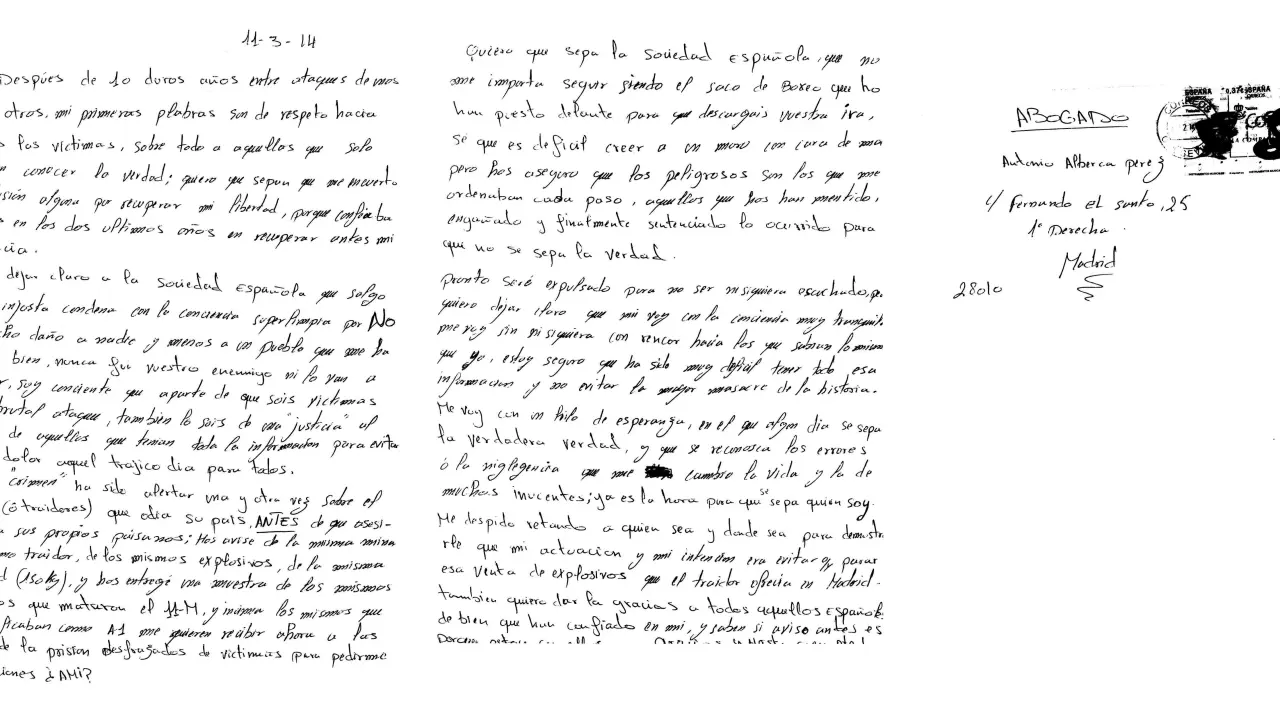 11-3-14
Despúes de 10 duros años entre ataques de unos
otros, mi primeras plabras son de respeto hacia
los víctimas, sobre todo a aquellos que solo
conocer la verdad; quiero que sepan que me encuentro
alguna por recuperar mi libertad, porque confiaba
en los dos ultimos años en recuperar antes mi
cia.
dejar claro a la sociedad Española que salgo
injusta condena con la conciencia superlimpia por NO
cho daño a nadie y menos a un pueblo que me ha
bien, nunca fui vuestro enemigo ni lo van a
r, soy conciente que aparte de que sois víctimas
brutal ataque, también lo sois de una "justicia" al
de aquellos que tenian toda la informacion para evitar
dolor aquel trajico dia para todos.
"crimen" ha sido alertar una y otra vez sobre el
(ó traidores) que odia su país, ANTES de que asesi-
a sus propios paisanos; Hos avise de la misma mina
mo traidor, de los mismos explosivos, de la misma
d (150kg), y hos entregé una muestra de los mismos
os que mataron el 11-M, y
Acaban como A1 me quieren recibir ahora a las
de la prision desfrazados de victimas para pedirme
iones ¿AMi?
Quiero que sepa la sociedad Española, que no
me importa seguir siendo el saco de Boxeo que ho
han puesto delante para que descargais vuestra ira,
se que es deficil creer a un moro con cara de ma
pero hos aseguro que los peligrosos son los que me
ordenaban cada paso, aquellos que hos han mentido,
engañado y finalmente sentenciado lo ocurrido para
que no se sepa la verdad.
pronto seré expulsado para no ser nisiquiera escuchado,
quiero dejar claro que me voy con la conciencia muy tranquila
me voy sin nisiquiera con rencor hacia los que sabian lo mismo
que yo, estoy seguro que ha sido muy deficil tener todo esa
informacion y no evitar la mayor masacre de la historia.
Me voy con un hilo de esperanza, en el que algun dia se sepa
la verdadera verdad, y que se reconosca los errores
ó la niglegencia que me cambio la vida y la de
muchos inocentes; ya es la hora para que se sepa quien soy.
Me despido retando a quien sea y donde sea para demostra
rle que mi actuacion y mi intencion era evitar y parar
esa venta de explosivos que el traidor ofrecia en Madrid.
tambien quiero dar la gracias a todos aquellos Españoles
de bien que han confiado en mi, y saben si aviso antes es
ABOGADO
Antonio Alberca perez
c/ Fernando el santo, 25
1º Derecha.
Madrid
28010
ESPAÑA 0,37€ ESPAÑA
CORREOS